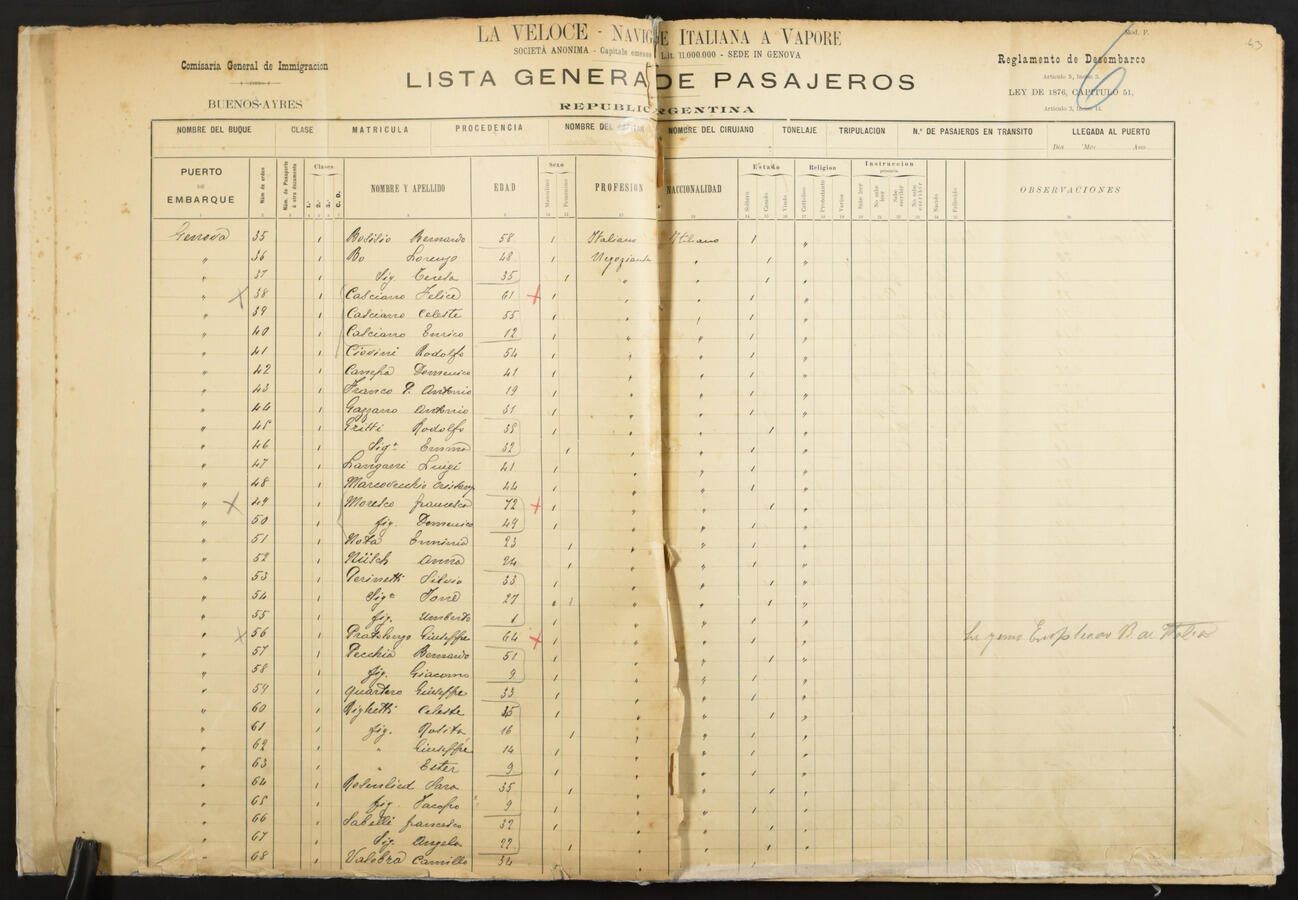 LA VELOCE - NAVIG E ITALIANA A VAPORE
Mod. F.
63
SOCIETÀ ANONIMA - Capitale emesso Lit. 11.000.000 - SEDE IN GENOVA
6
Comisaria General de Immigracion
BUENOS-AYRES
LISTA GENERA DE PASAJEROS
REPUBLIC RGENTINA
Reglamento de Desembarco
Articulo 5, Inciso 3.
LEY DE 1876, CAPITULO 51,
Articulo 3, Inciso 14.
NOMBRE DEL BUQUE CLASE MATRICULA PROCEDENCIA NOMBRE DEL NOMBRE DEL CIRUJANO TONELAJE TRIPULACION N.º DE PASAJEROS EN TRANSITO LLEGADA AL PUERTO
Dia Mes Ano
PUERTO DE EMBARQUE Núm. de orden Núm. de Pasaporte ú otro documento Clases 1.ª 2.ª 3.ª C. D. NOMBRE Y APELLIDO EDAD Sexo Masculino Femenino PROFESION NACCIONALIDAD Estado Soltero Casado Viudo Religion Catolico Protestante Varios Instruccion primaria Sabe leer No sabe leer Sabe escribir No sabe escribir Nacido Fallecido OBSERVACIONES
Genova 35 1 Basilio Bernardo 58 1 Italiano Italiano 1 "
" 36 1 Bo Lorenzo 48 1 Negoziante " 1 "
" 37 1 Sig. Teresa 35 1 " " 1 "
" X 38 1 Casciano Felice 61 + 1 " " 1 "
" 39 1 Casciano Celeste 55 1 " " 1 "
" 40 1 Casciano Enrico 12 1 " " 1 "
" 41 1 Ciovini Rodolfo 54 1 " " 1 "
" 42 1 Canepa Domenico 41 1 " " 1 "
" 43 1 Franco P. Antonio 19 1 " " 1 "
" 44 1 Gazzano Antonio 31 1 " " 1 "
" 45 1 Gritti Rodolfo 38 1 " " 1 "
" 46 1 Sigª Emma 32 1 " " 1 "
" 47 1 Langani Luigi 41 1 " " 1 "
" 48 1 Marcovecchio 44 1 " " 1 "
" X 49 1 Moresco francesco 72 + 1 " " 1 "
" 50 1 fig. Domenico 49 1 " " 1 "
" 51 1 Nota Erminia 23 1 " " 1 "
" 52 1 Nütsch Anna 24 1 " " 1 "
" 53 1 Perinetti Silvio 33 1 " " 1 "
" 54 1 Sigª 27 1 " " 1 "
" 55 1 fig. Umberto 1 " " 1 "
" X 56 1 Pratolongo Giuseppe 64 + 1 " " 1 "
" 57 1 Pecchia Bernardo 51 1 " " 1 "
" 58 1 fig. Giacomo 9 1 " " 1 "
" 59 1 Quartero Giuseppe 33 1 " " 1 "
" 60 1 Righetti Celeste 35 1 " " 1 "
" 61 1 fig. Rosita 16 1 " " 1 "
" 62 1 " Giuseppe 14 1 " " 1 "
" 63 1 " Ester 9 1 " " 1 "
" 64 1 Rosenlied Sara 35 1 " " 1 "
" 65 1 fig. Jacopo 9 1 " " 1 "
" 66 1 Sabelli francesco 32 1 " " 1 "
" 67 1 Sig. Angela 22 1 " " 1 "
" 68 1 Valobra Camillo 34 1 " " 1 "